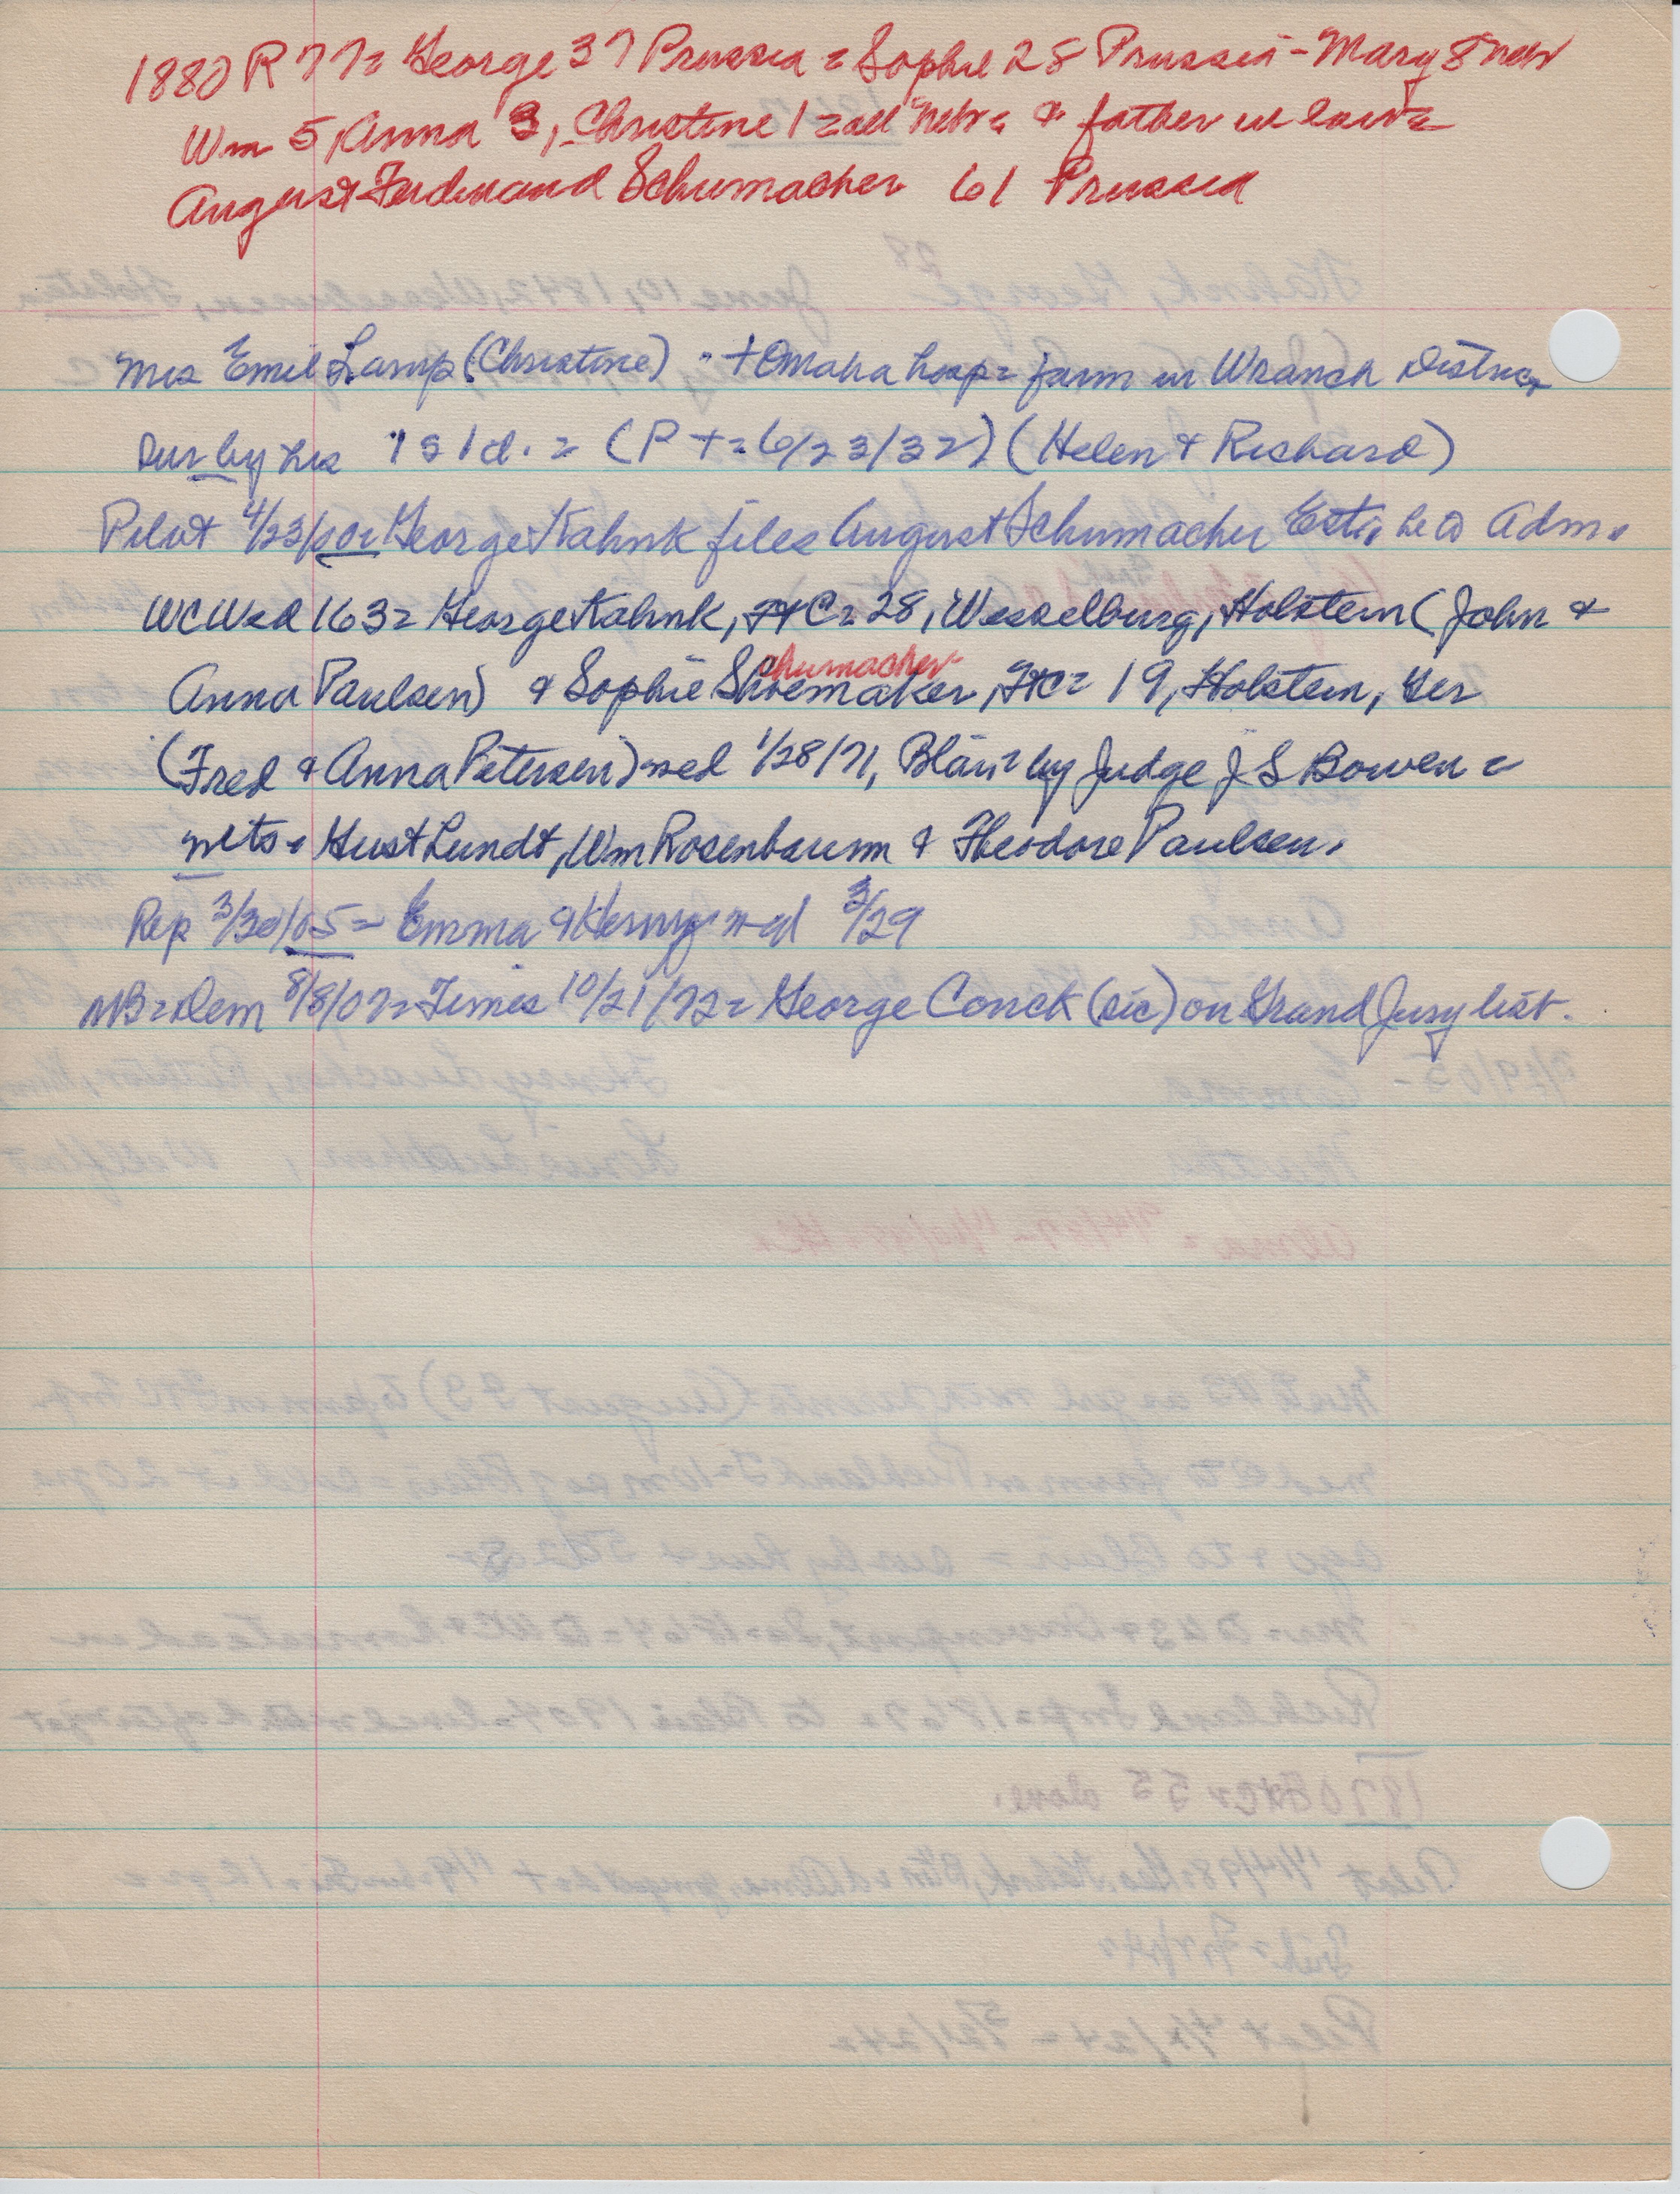 1880 R 77 = George 37 Prussia = Sophie 28 Prussia - Mary 8 Nebr
Wm 5, Anna 3, Christine 1 = all Nebr = & father in law =
August Ferdinand Schumacher 61 Prussia
Mrs Emil Lamp (Christine) + Omaha hosp = farm in Wranch District
Sur by hus 1 s 1 d. = (P + = 6/23/32) (Helen & Richard)
Pilot 4/23/ = George Kahnk files August Schumacher Est, he is Adm.
WC Wed 163 = George Kahnk, FtC = 28, Wesselburg, Holstein (John &
Schumacher
Anna Paulsen) & Sophie Shoemaker, FtC = 19, Holstein, Ger
(Fred & Anna Petersen) wed 1/28/71, Blair = by Judge J S Bowen =
wits = Gust Lundt, Wm Rosenbaum & Theodore Paulsen.
Rep 3/30/05 = Emma & Henry wed 3/29
NB = Dem 8/8/07 = Times 10/21/72 = George Conck (sic) on Grand Jury list.